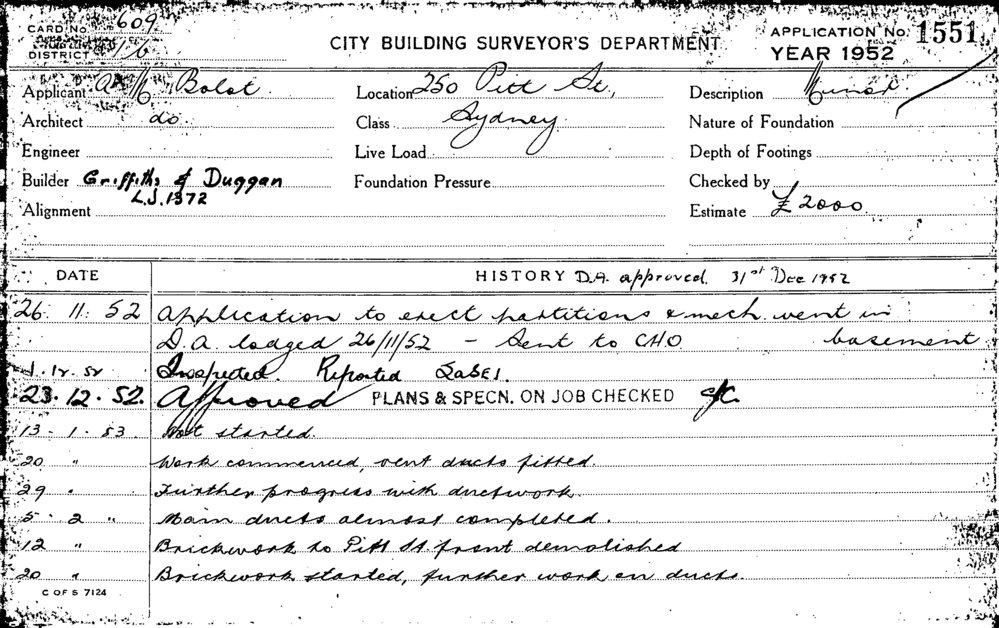 CARD No. 609
CITY BUILDING SURVEYOR'S DEPARTMENT
APPLICATION No. 1551
DISTRICT 16
YEAR 1952
Applicant A M Bolot Location 250 Pitt St, Description Minor
Architect do Class Sydney Nature of Foundation
Engineer Live Load Depth of Footings
Builder Griffiths & Duggan Foundation Pressure Checked by
L.J. 1372
Alignment Estimate £2000
DATE HISTORY D.A. approved. 31st Dec 1952
26. 11. 52 Application to erect partitions & mech. vent in
D.A. lodged 26/11/52 - Sent to CHO basement
1.12.52 Inspected. Reported
23.12.52. Approved PLANS & SPECN. ON JOB CHECKED
13 - 1 - 53 Not started.
20 " Work commenced, vent ducts fitted.
29 " Further progress with ductwork.
5 - 2 " Main ducts almost completed.
12 " Brickwork to Pitt St. front demolished
20 " Brickwork started, further work on ducts.
C OF S 7124